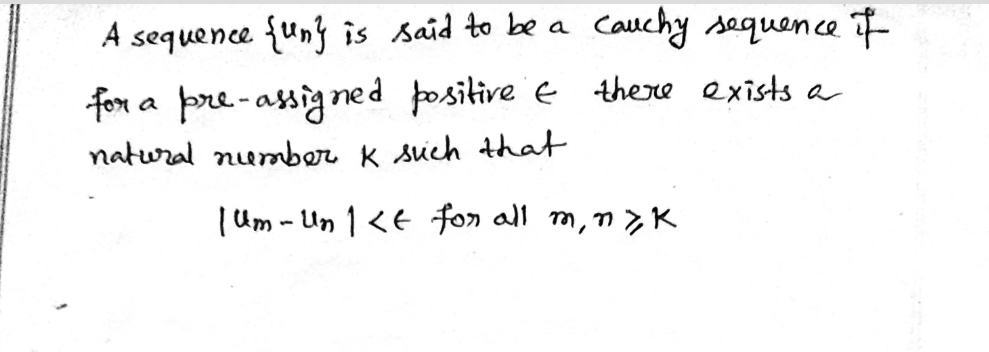 A sequence {un} is said to be a Cauchy sequence if
for a pre-assigned positive ϵ there exists a
natural number K such that
|um - un| < ϵ for all m, n ⩾ K